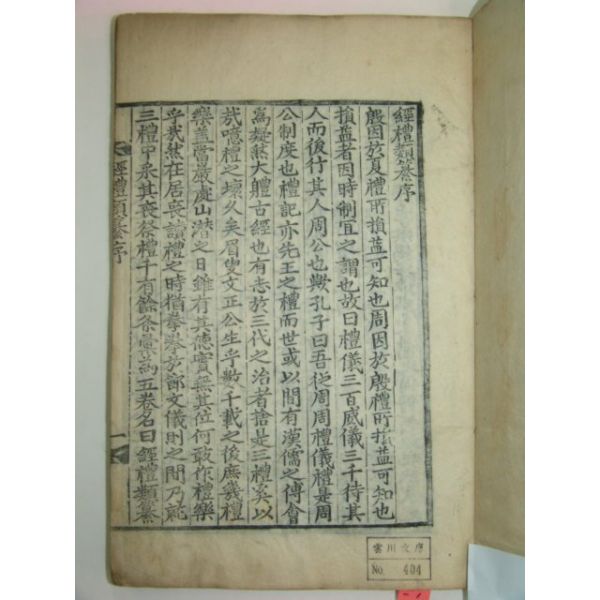 經禮類纂序
殷因於夏禮所損益可知也周因於殷禮所損益可知也
損益者因時制宜之謂也故曰禮儀三百威儀三千待其
人而後行其人周公也歟孔子曰吾從周周禮儀禮是周
公制度也禮記亦先王之禮而世或以間有漢儒之傅會
爲疑然大體古經也有志於三代之治者捨是三禮奚以
哉噫禮之壞久矣眉叟文正公生乎數千載之後庶幾禮
樂盖當嚴處山潜之日雖有其德實無其位何敢作禮樂
乎哉然在居喪讀禮之時猶拳拳於節文儀則之間乃就
三禮中永其喪祭禮千有餘条彙爲五卷名曰經禮類纂
經禮類纂序
一
雲川文庫
No. 404